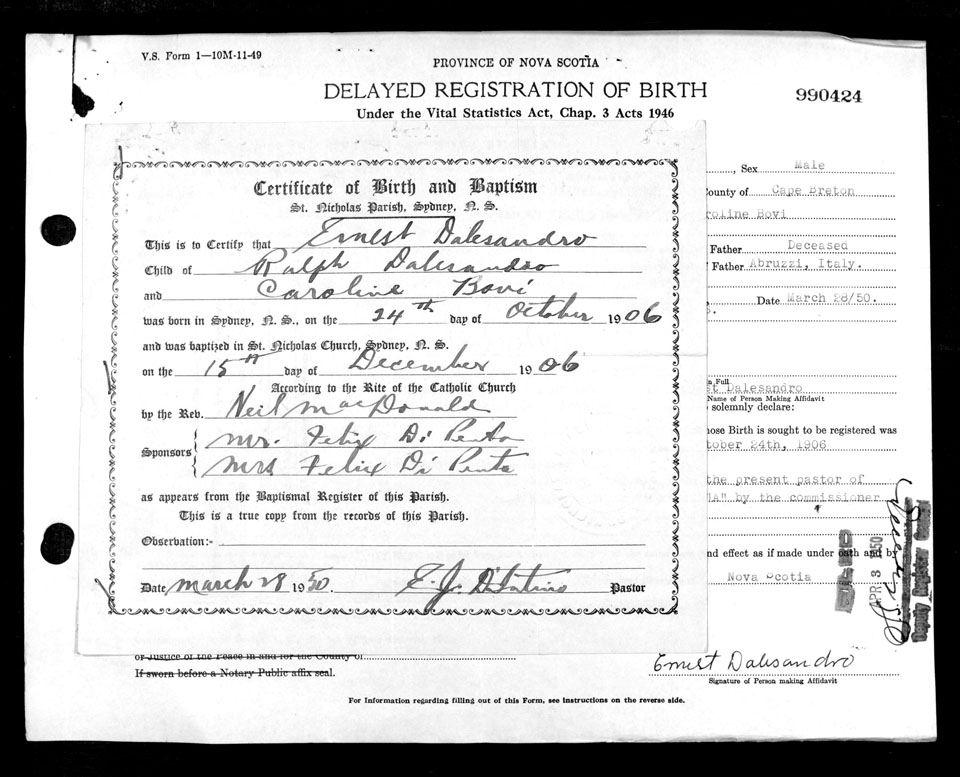 V.S. Form 1—10M-11-49
PROVINCE OF NOVA SCOTIA
DELAYED REGISTRATION OF BIRTH
990424
Under the Vital Statistics Act, Chap. 3 Acts 1946
Certificate of Birth and Baptism
St. Nicholas Parish, Sydney, N. S.
This is to Certify that Ernest Dalesandro
Child of Ralph Dalesandro
and Caroline Bovi
was born in Sydney, N. S., on the 24th day of October 1906
and was baptized in St. Nicholas Church, Sydney, N. S.
on the 15th day of December 1906
According to the Rite of the Catholic Church
by the Rev. Neil MacDonald
Sponsors
Mr. Felix Di Penta
Mrs Felix Di Penta
as appears from the Baptismal Register of this Parish.
This is a true copy from the records of this Parish.
Observation:-
Date March 28 1950. Pastor
, Sex Male
ounty of Cape Breton
roline Bovi
Father Deceased
Father Abruzzi, Italy.
Date March 28/50.
n Full
st Dalesandro
Name of Person Making Affidavit
solemnly declare:
ose Birth is sought to be registered was
tober 24th, 1906
the present pastor of
"A" by the commissioner
nd effect as if made under oath and by
Nova Scotia
APR 3 1950
Deputy Registrar General
or Justice of the Peace in and for the County of
If sworn before a Notary Public affix seal.
Ernest Dalesandro
Signature of Person making Affidavit
For Information regarding filling out of this Form, see instructions on the reverse side.